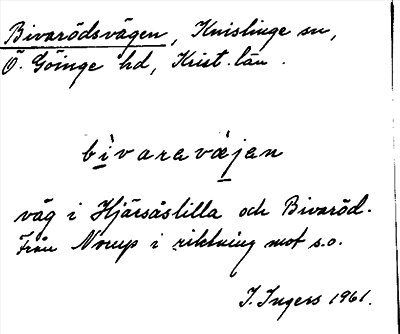 Bivarödsvägen, Knislinge sn,
Ö. Göinge hd, Krist. län.
bìvaravæjen
väg i Hjärsåslilla och Bivaröd.
Från Norup i riktning mot s.o.
I. Ingers 1961.